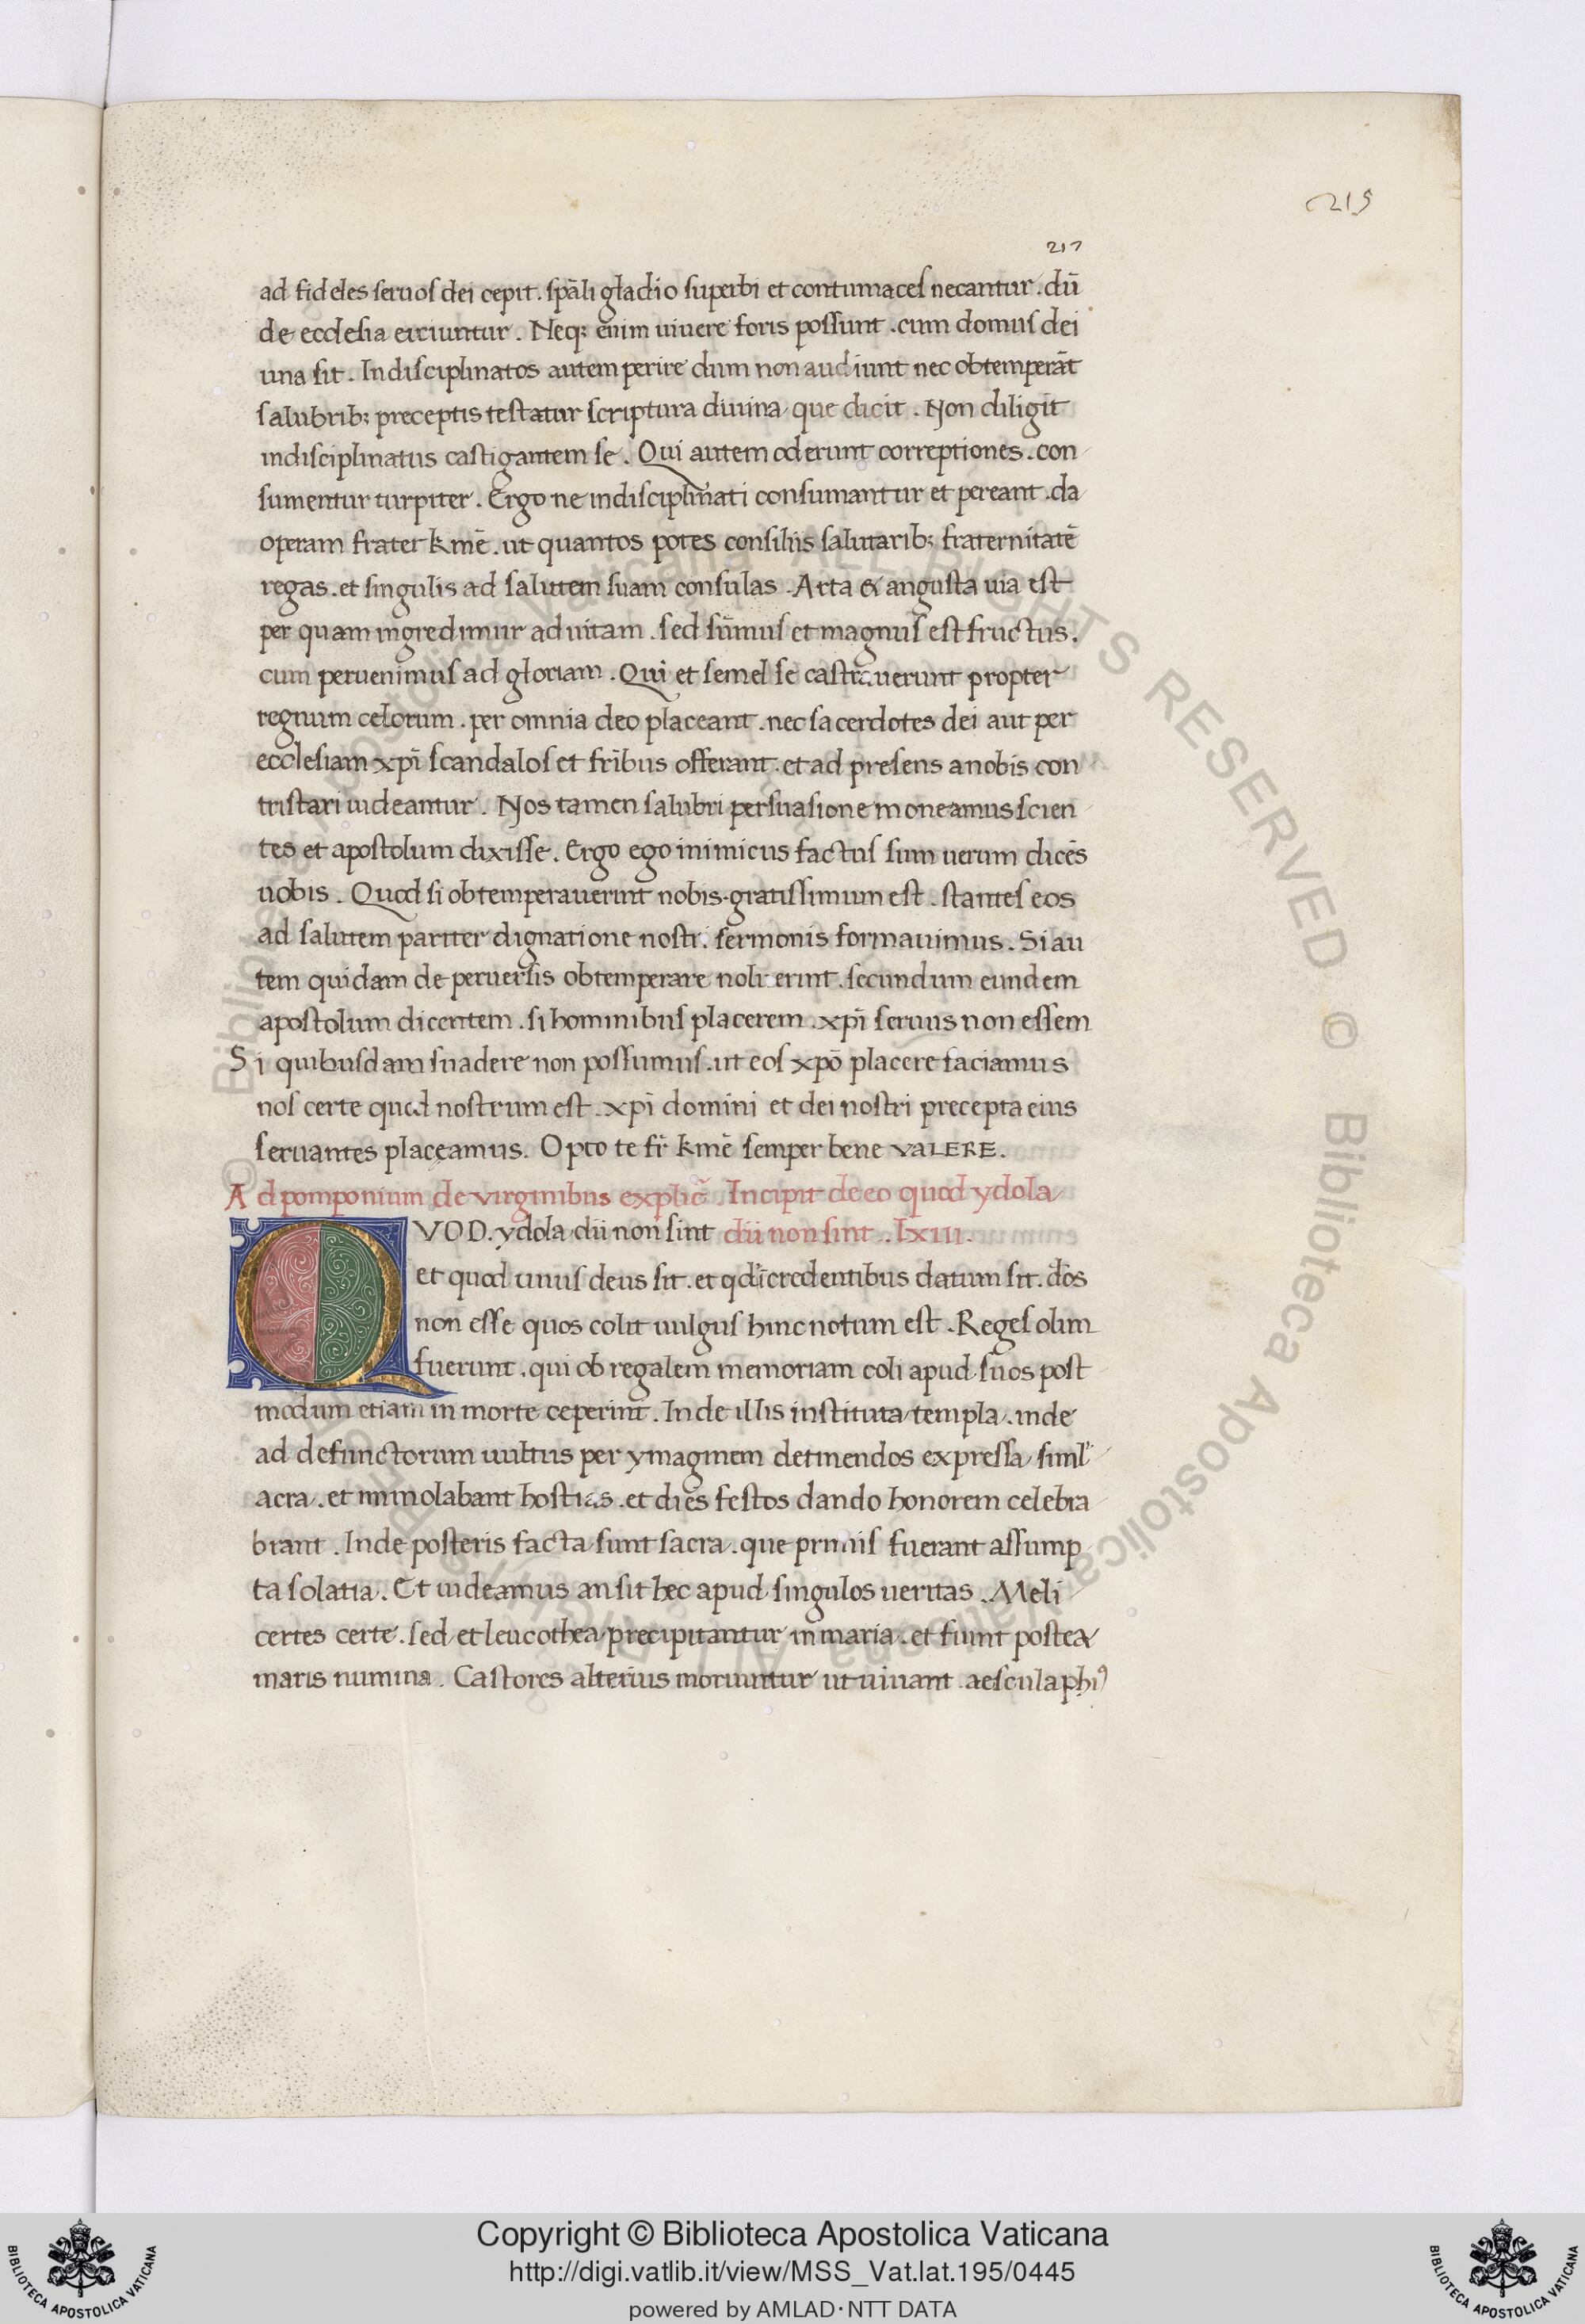 219
217
ad fideles seruos dei cepit. sp̄ali gladio superbi et contumaces necantur. dū
de ecclesia eiciuntur. Neq; enim uiuere foris possunt. cum domus dei
una sit. Indisciplinatos autem perire dum non audiunt nec obtemperāt
salubrib; preceptis testatur scriptura diuina que dicit. Non diligit
indisciplinatus castigantem se. Qui autem oderunt correptiones. con
sumentur turpiter. Ergo ne indisciplinati consumantur et pereant. da
operam frater kmē. ut quantos potes consiliis salutarib; fraternitatē
regas. et singulis ad salutem suam consulas. Arta & angusta uia est
per quam ingredimur ad uitam. sed sūmus et magnus est fructus.
cum peruenimus ad gloriam. Qui et semel se castrauerunt propter
regnum celorum. per omnia deo placeant. nec sacerdotes dei aut per
ecclesiam xp̄i scandalos et frībus offerant. et ad presens a nobis con
tristari uideantur. Nos tamen salubri persuasione moneamus scien
tes et apostolum dixisse. Ergo ego inimicus factus sum uerum dicēs
uobis. Quod si obtemperauerint nobis. gratissimum est. stantes eos
ad salutem pariter dignatione nostri sermonis formauimus. Si au
tem quidam de peruersis obtemperare noluerint. secundum eundem
apostolum dicentem. si hominibus placerem. xp̄i seruus non essem
Si quibusdam suadere non possumus. ut eos xp̄o placere faciamus
nos certe quod nostrum est. xp̄i domini et dei nostri precepta eius
seruantes placeamus. Opto te fr̄ kmē semper bene VALERE.
Ad pomponium de virginibus explic̄. Incipit de eo quod ydola
QVOD. ydola dii non sint dii non sint. lxiii.
et quod unus deus sit. et qd̄ credentibus datum sit. dōs
non esse quos colit uulgus hinc notum est. Reges olim
fuerunt. qui ob regalem memoriam coli apud suos post
modum etiam in morte ceperint. Inde illis instituta templa. inde
ad defunctorum uultus per ymaginem detinendos expressa simul
acra. et immolabant hostias. et dies festos dando honorem celebra
brant. Inde posteris facta sunt sacra. que primis fuerant assump
ta solatia. Et uideamus an sit hec apud singulos ueritas. Meli
certes certe. sed et leucothea precipitantur in maria. et fiunt postea
maris numina. Castores alterius moriuntur ut uiuant. aesculaphi⁹
Copyright © Biblioteca Apostolica Vaticana
http://digi.vatlib.it/view/MSS_Vat.lat.195/0445
powered by AMLAD·NTT DATA
BIBLIOTECA APOSTOLICA VATICANA
BIBLIOTECA APOSTOLICA VATICANA